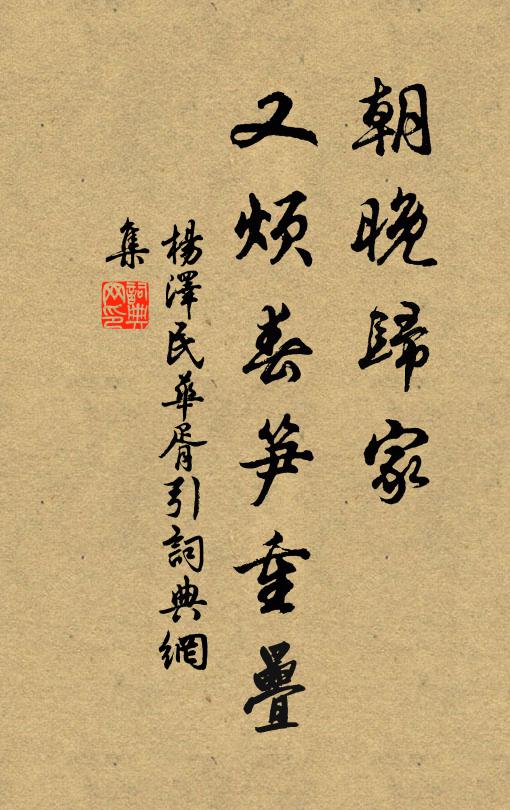 朝晚歸家
又煩春笋重疊
楊澤民華胥引詞典網
集
詞典
网印